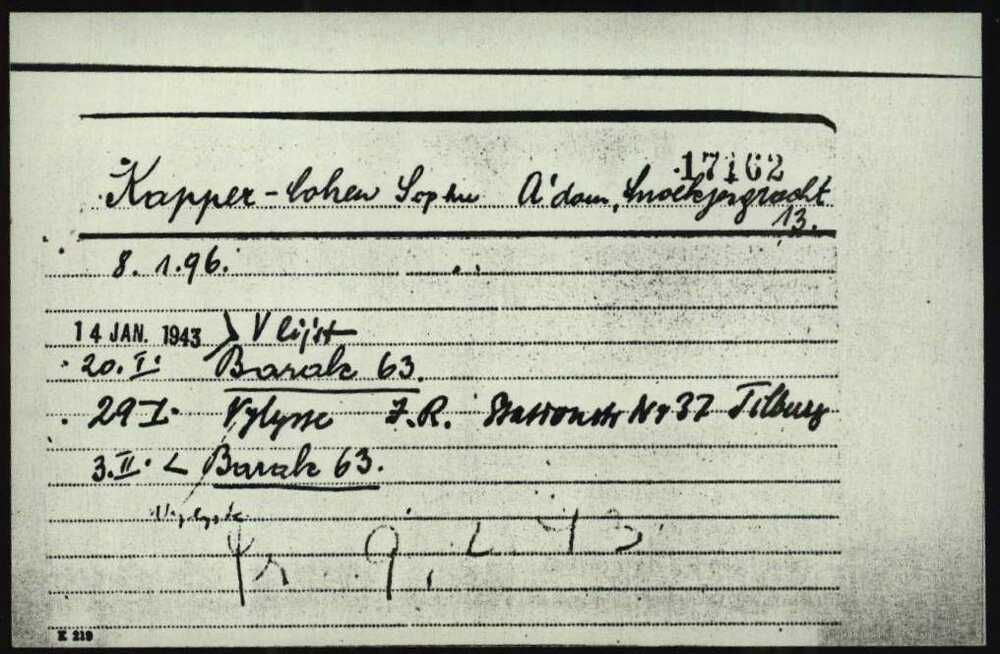 17162
Kapper-Cohen Sophie A'dam, Snoekjesgracht
13.
8. 1. 96.
14 JAN. 1943 > Vlijst
20. I. Barak 63.
29 I. Vylyste J.R. Stationstr Nr 37 Tilburg
3. II. < Barak 63.
9. 2. 43
K 219